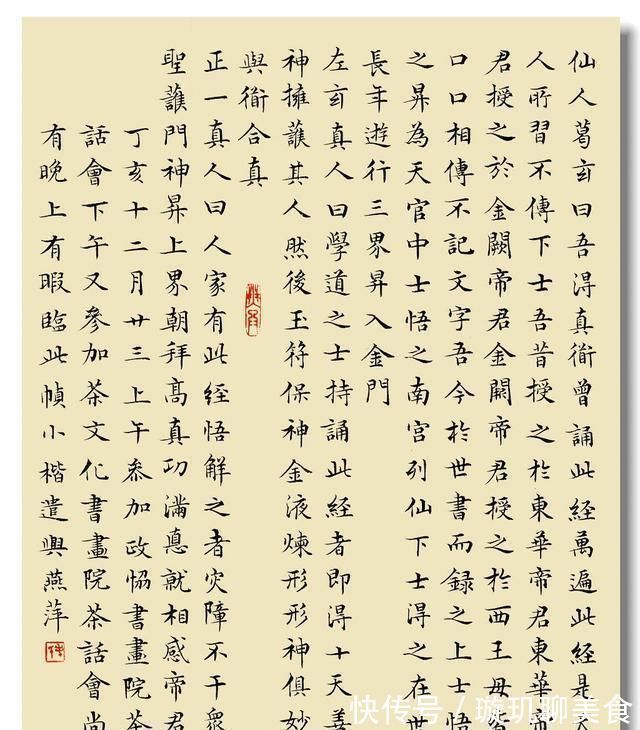 仙人葛玄曰吾得真衜曾誦此經萬遍此經是天
人所習不傳下士吾昔授之於東華帝君東華帝
君授之於金闕帝君金闕帝君授之於西王母皆
口口相傳不記文字吾今於世書而録之上士悟
之昇為天官中士悟之南宫列仙下士得之在世
長年遊行三界昇入金門
左玄真人曰學道之士持誦此經者即得十天善
神擁護其人然後玉符保神金液煉形形神俱妙
與衜合真
正一真人曰人家有此經悟解之者灾障不干衆
聖護門神昇上界朝拜高真功滿悳就相感帝君
丁亥十二月廿三上午叅加政協書畫院茶
話會下午又參加茶文化書畫院茶話會尚
有晚上有暇臨此幀小楷遣興燕萍
快传号／璇玑聊美食